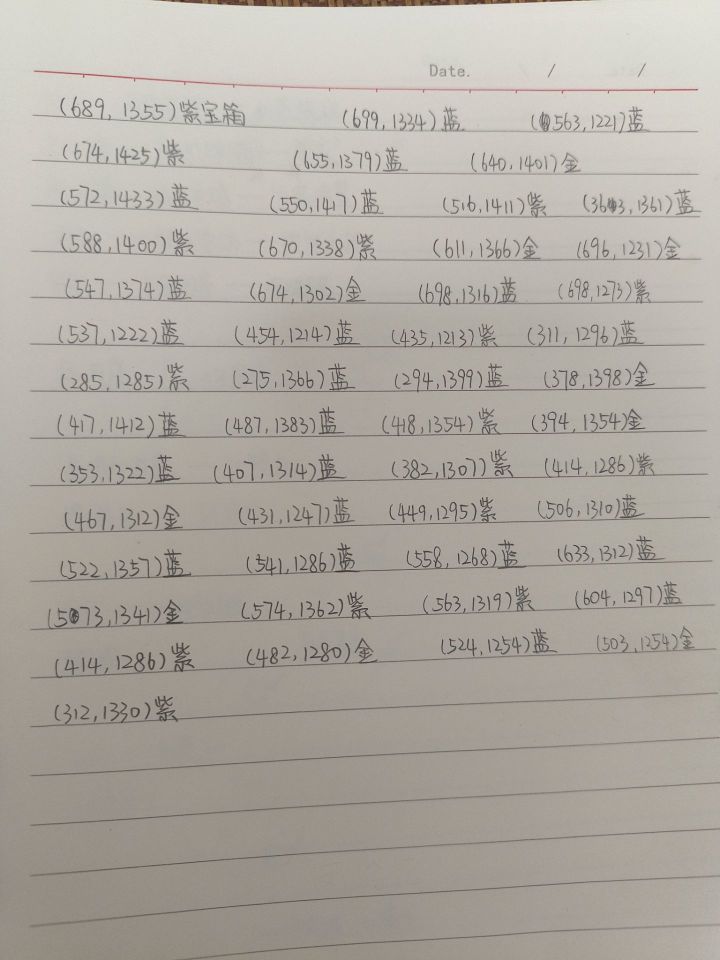 Date. / /
(689, 1355)紫宝箱 (699, 1334)蓝 (563, 1221)蓝
(674, 1425)紫 (655, 1379)蓝 (640, 1401)金
(572, 1433)蓝 (550, 1417)蓝 (516, 1411)紫 (363, 1361)蓝
(588, 1400)紫 (670, 1338)紫 (611, 1366)金 (696, 1231)金
(547, 1374)蓝 (674, 1302)金 (698, 1316)蓝 (698, 1273)紫
(537, 1222)蓝 (454, 1214)蓝 (435, 1213)紫 (311, 1296)蓝
(285, 1285)紫 (275, 1366)蓝 (294, 1399)蓝 (378, 1398)金
(417, 1412)蓝 (487, 1383)蓝 (418, 1354)紫 (394, 1354)金
(353, 1322)蓝 (407, 1314)蓝 (382, 1307)紫 (414, 1286)紫
(467, 1312)金 (431, 1247)蓝 (449, 1295)紫 (506, 1310)蓝
(522, 1357)蓝 (541, 1286)蓝 (558, 1268)蓝 (633, 1312)蓝
(573, 1341)金 (574, 1362)紫 (563, 1319)紫 (604, 1297)蓝
(414, 1286)紫 (482, 1280)金 (524, 1254)蓝 (503, 1254)金
(312, 1330)紫